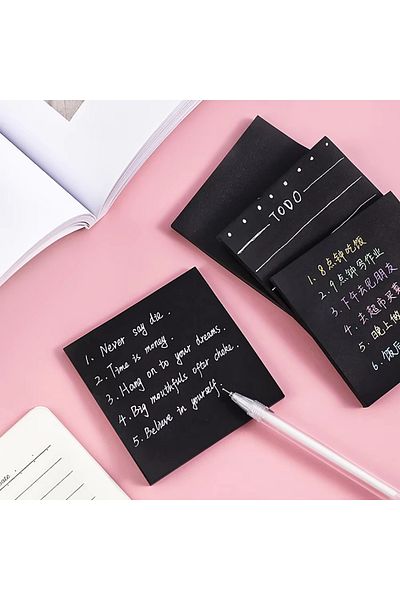 1. Never say die.
2. Time is money.
3. Hang on to your dreams.
4. Big mouthfuls ofter choke.
5. Believe in yourself.
TODO
1. 8点钟吃饭
2. 9点钟写作业
3. 下午去见朋友
4. 去超市买
5. 晚上
6. 饭后